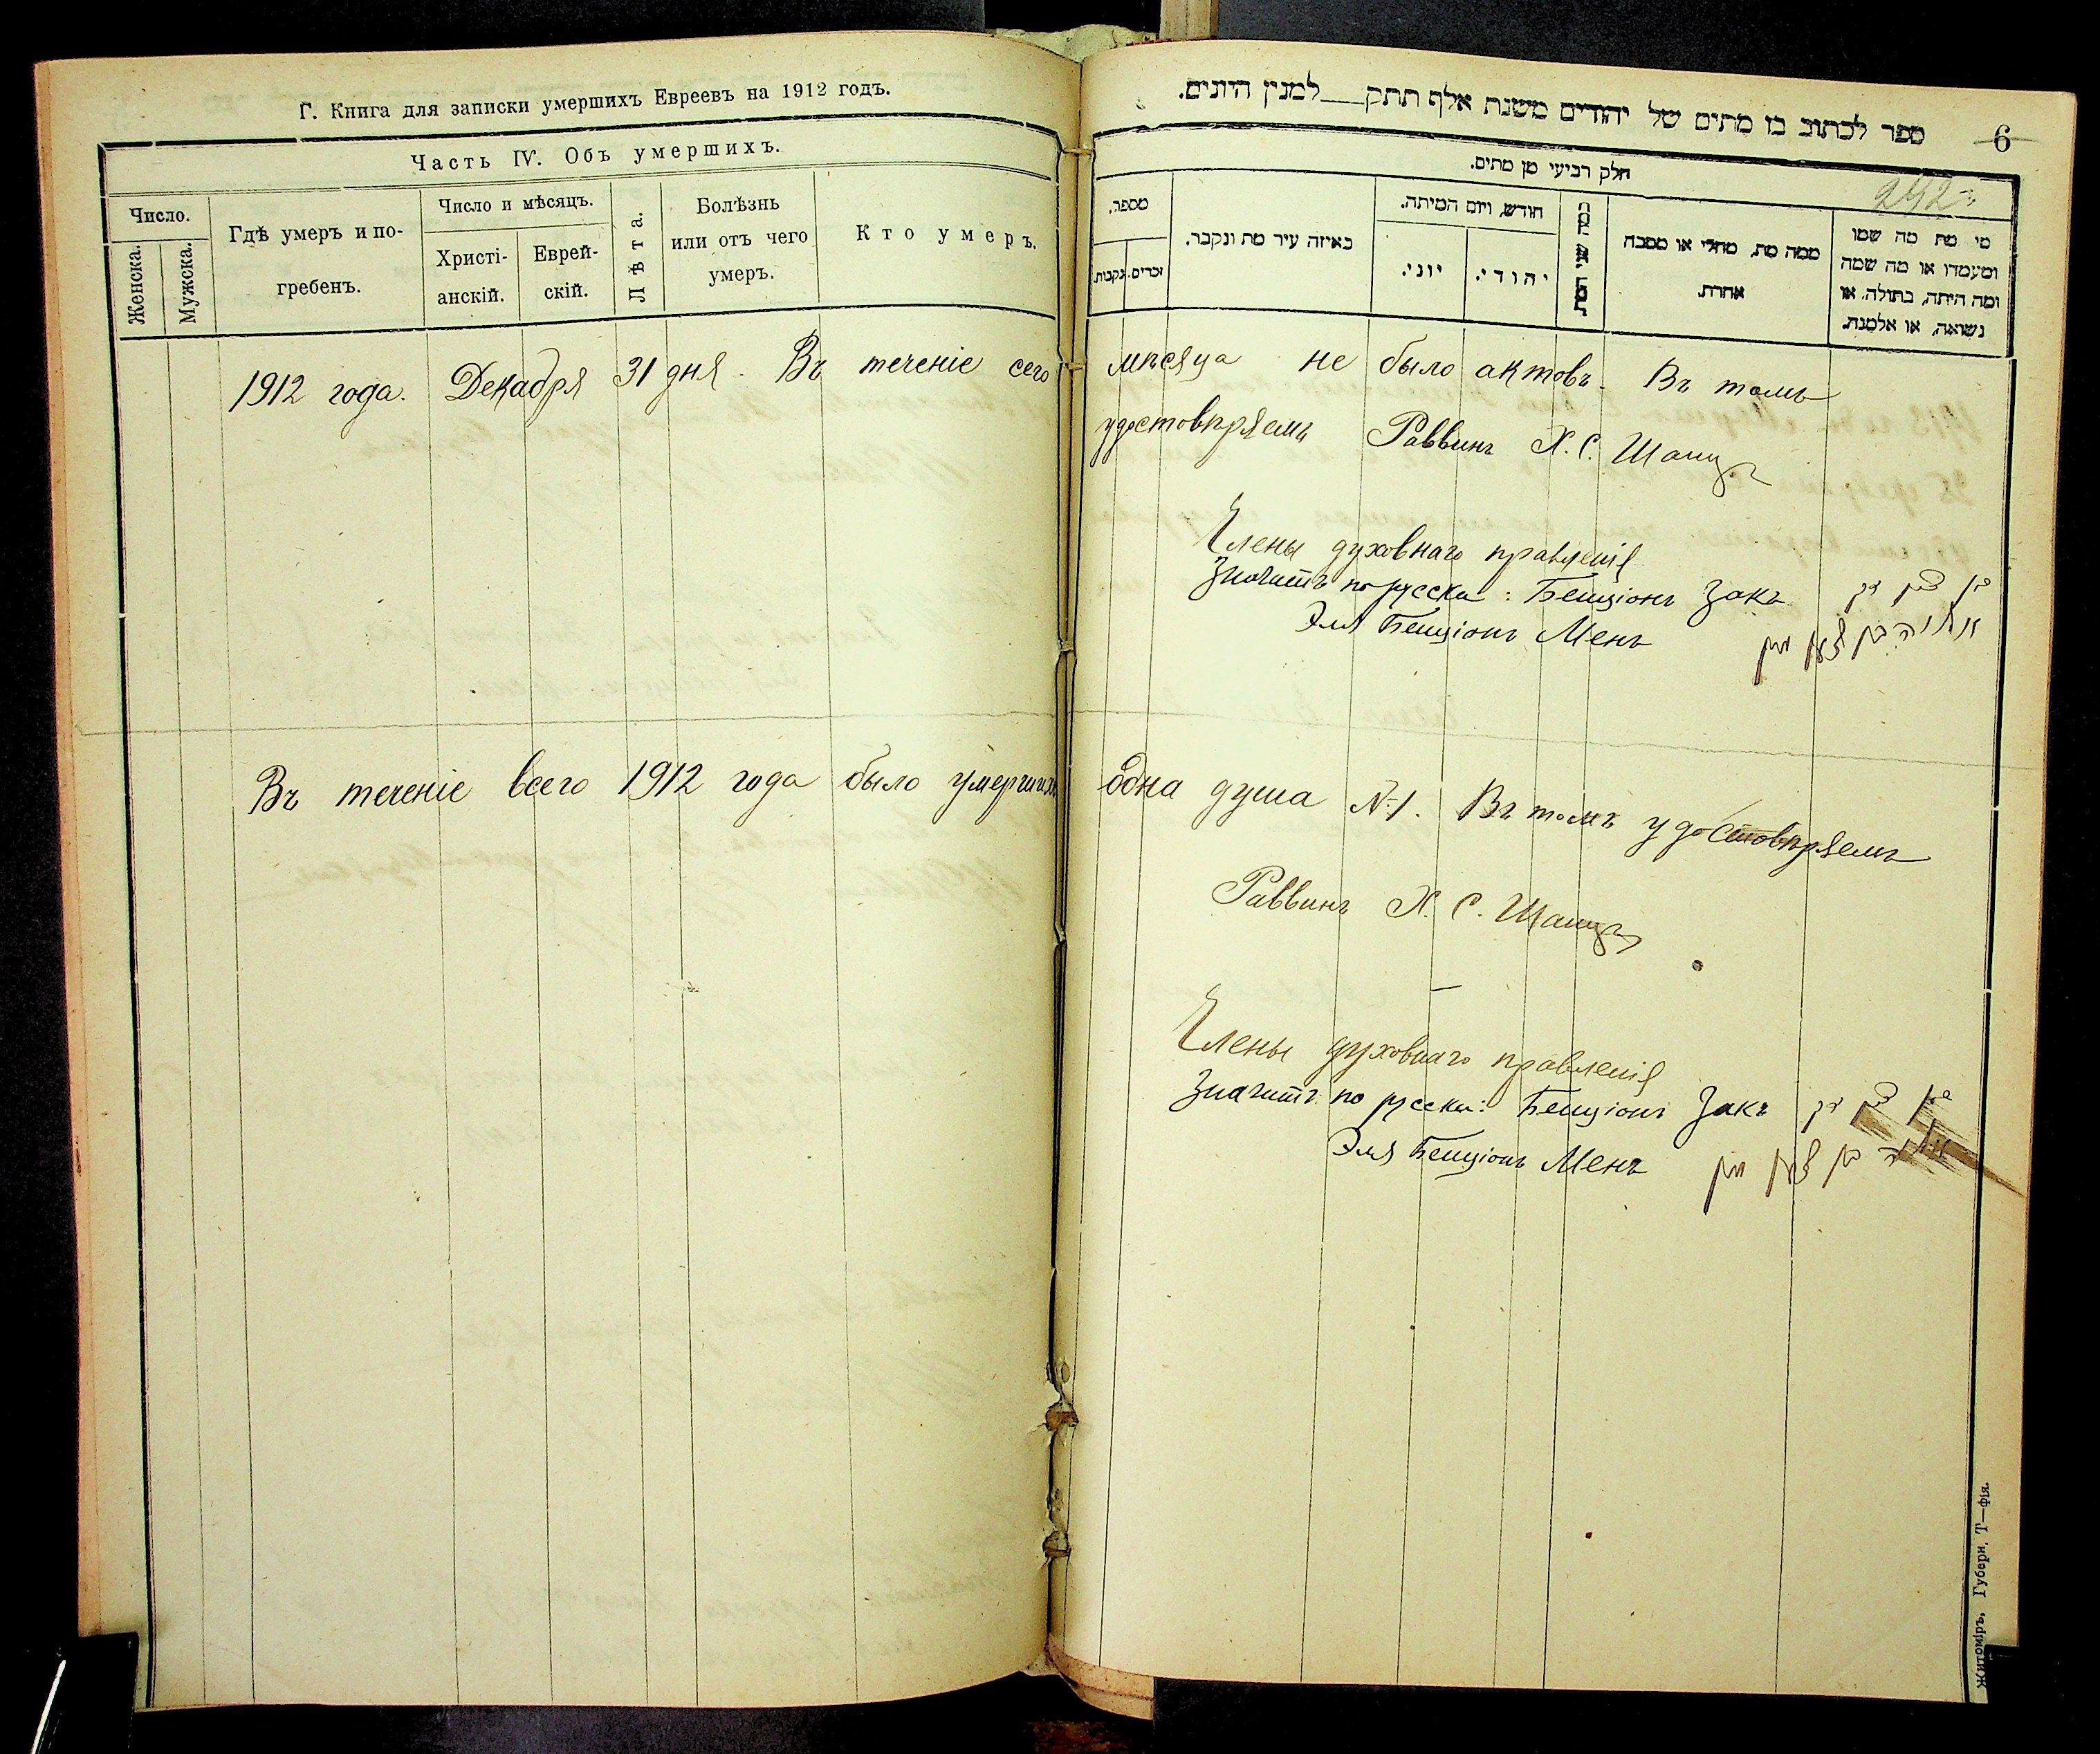 Г. Книга для записки умершихъ Евреевъ на 1912 годъ.
Часть IV. Объ умершихъ.
Число.
Женска.
Мужска.
Гдѣ умеръ и по-
гребенъ.
Число и мѣсяцъ.
Христі-
анскій.
Еврей-
скій.
Лѣта.
Болѣзнь
или отъ чего
умеръ.
Кто умеръ.
ספר לכתוב בו מתים של יהודים משנת אלף תתק למנין היונים.
6
242
חלק רביעי מן מתים.
מספר.
זכרים.
נקבות.
באיזה עיר מת ונקבר.
חודש, ויום המיתה.
יוני.
יהודי.
כמה שני המת
ממה מת, מחלי או מסבה
אחרת.
מי מת מה שמו
ומעמדו או מה שמה
ומה היתה, בתולה, או
נשואה, או אלמנה.
1912 года. Декабря 31 дня. Въ теченіе сего мѣсяца не было актовъ. Въ томъ
удостовѣряемъ Раввинъ Х. С. Шапиръ
Члены духовнаго правленія
Значитъ по русски: Бенціонъ Закъ בן ציון זק
Эля Бенціонъ Менъ אליה בן ציון מן
Въ теченіе всего 1912 года было умершихъ одна душа №1. Въ томъ удостовѣряемъ
Раввинъ Х. С. Шапиръ
Члены духовнаго правленія
Значитъ по русски: Бенціонъ Закъ בן ציון זק
Эля Бенціонъ Менъ אליה בן ציון מן
Житоміръ, Губерн. Т—фія.